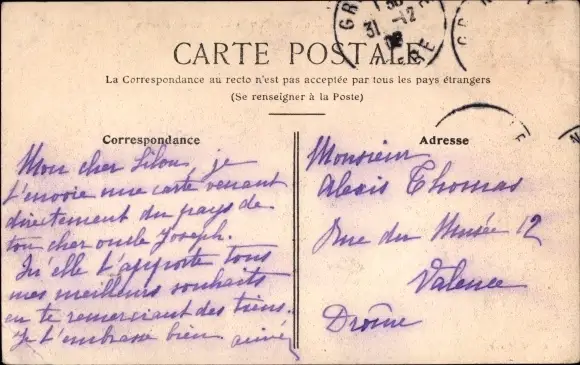 CARTE POSTALE
La Correspondance au recto n'est pas acceptée par tous les pays étrangers
(Se renseigner à la Poste)
Correspondance
Mon cher Lilou, je
t'envoie une carte venant
directement du pays de
ton cher oncle Joseph.
Qu'elle t'apporte tous
mes meilleurs souhaits
en te remerciant des tiens.
Je t'embrasse bien
Adresse
Monsieur
Alexis Thomas
Rue du Musée 12
Valence
Drôme
31 -12
GR